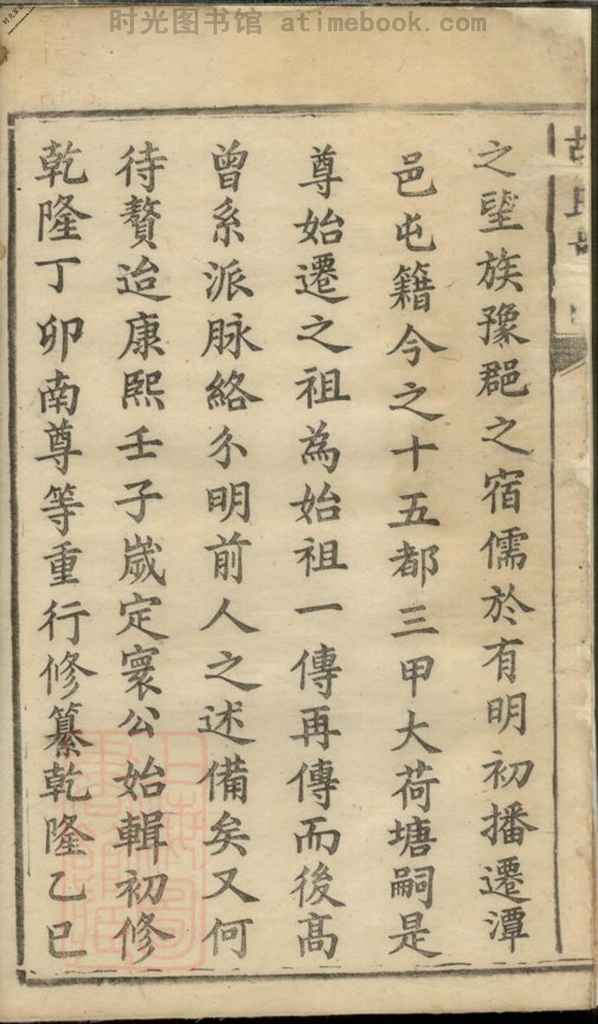 时光图书馆 atimebook.com
之望族豫郡之宿儒於有明初播遷潭
邑屯籍今之十五都三甲大荷塘嗣是
尊始遷之祖為始祖一傳再傳而後高
曾系派脉絡分明前人之述備矣又何
待贅迨康熙壬子歲定寰公始輯初修
乾隆丁卯南尊等重行修纂乾隆乙巳